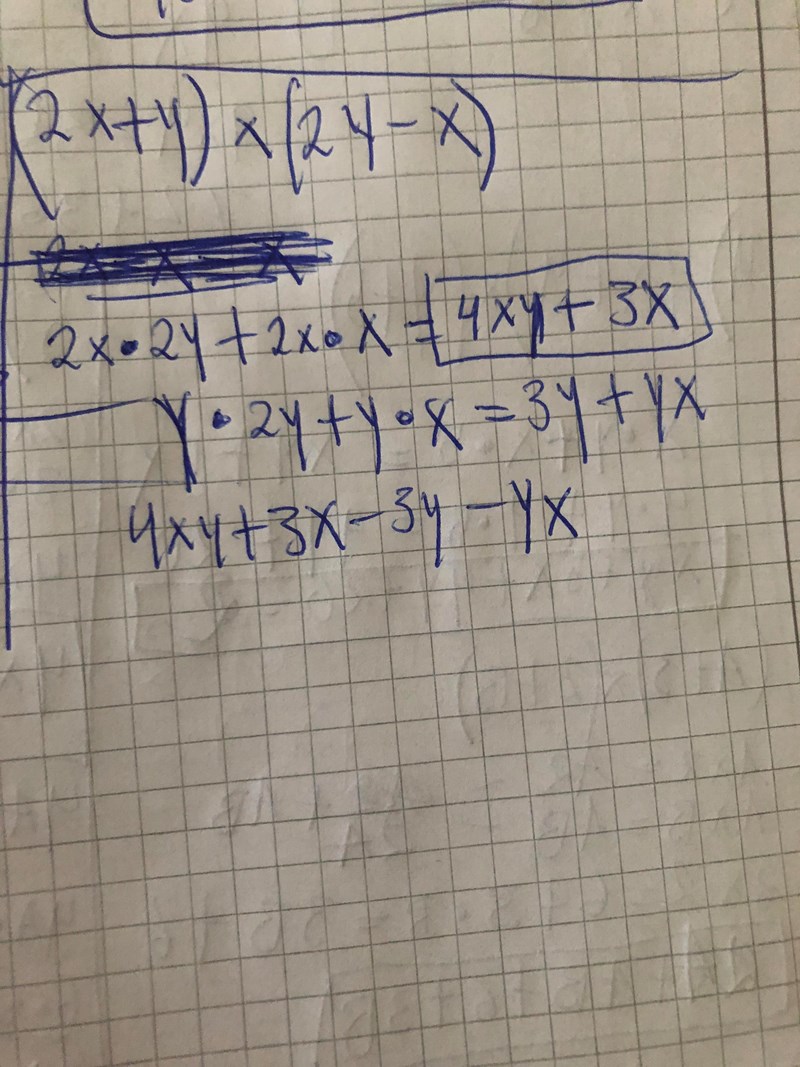 (2x+y) x (2y-x)
2x•2y+2x•x = 4xy+3x
y•2y+y•x = 3y+yx
4xy+3x-3y-yx